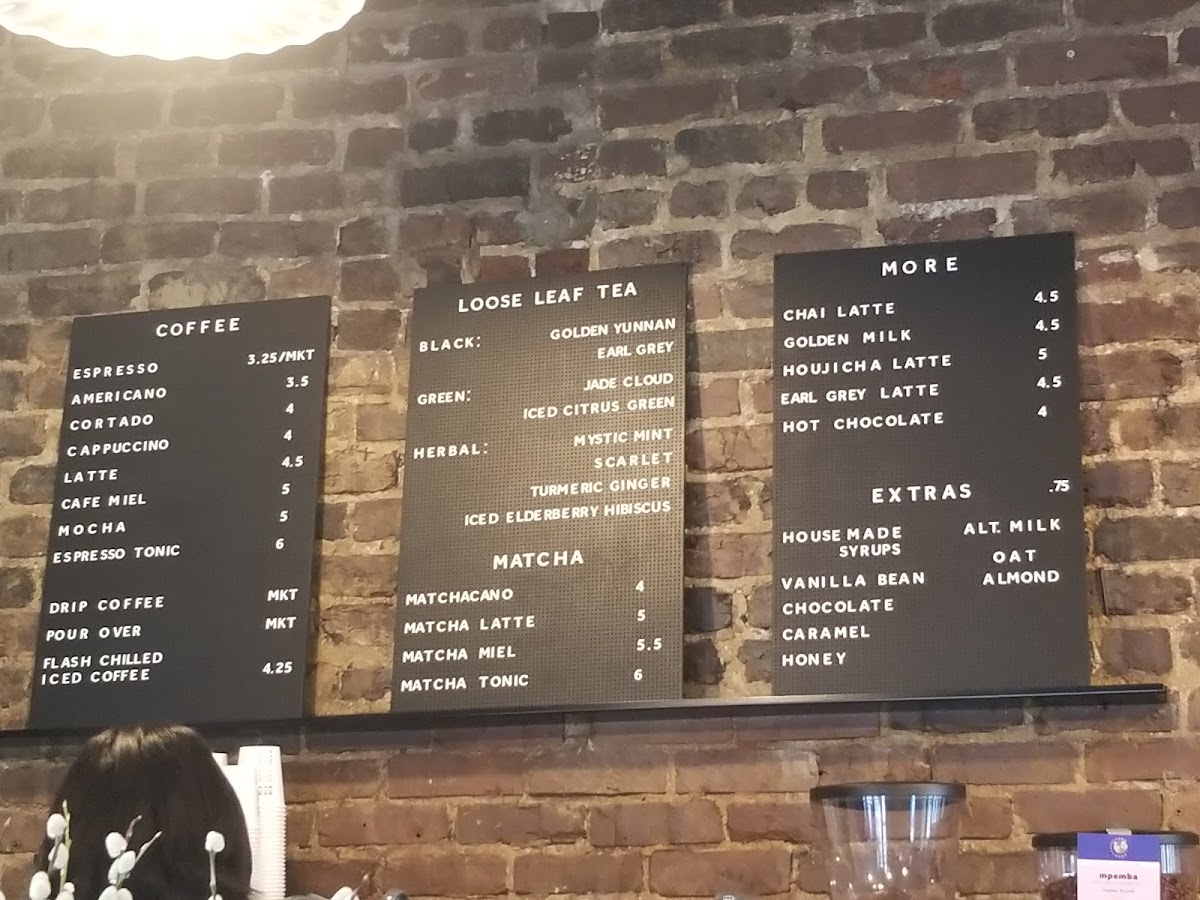 COFFEE
ESPRESSO 3.25/MKT
AMERICANO 3.5
CORTADO 4
CAPPUCCINO 4
LATTE 4.5
CAFE MIEL 5
MOCHA 5
ESPRESSO TONIC 6
DRIP COFFEE MKT
POUR OVER MKT
FLASH CHILLED
ICED COFFEE 4.25
LOOSE LEAF TEA
BLACK: GOLDEN YUNNAN
EARL GREY
GREEN: JADE CLOUD
ICED CITRUS GREEN
HERBAL: MYSTIC MINT
SCARLET
TURMERIC GINGER
ICED ELDERBERRY HIBISCUS
MATCHA
MATCHACANO 4
MATCHA LATTE 5
MATCHA MIEL 5.5
MATCHA TONIC 6
MORE
CHAI LATTE 4.5
GOLDEN MILK 4.5
HOUJICHA LATTE 5
EARL GREY LATTE 4.5
HOT CHOCOLATE 4
EXTRAS .75
HOUSE MADE ALT. MILK
SYRUPS OAT
VANILLA BEAN ALMOND
CHOCOLATE
CARAMEL
HONEY
mpemba